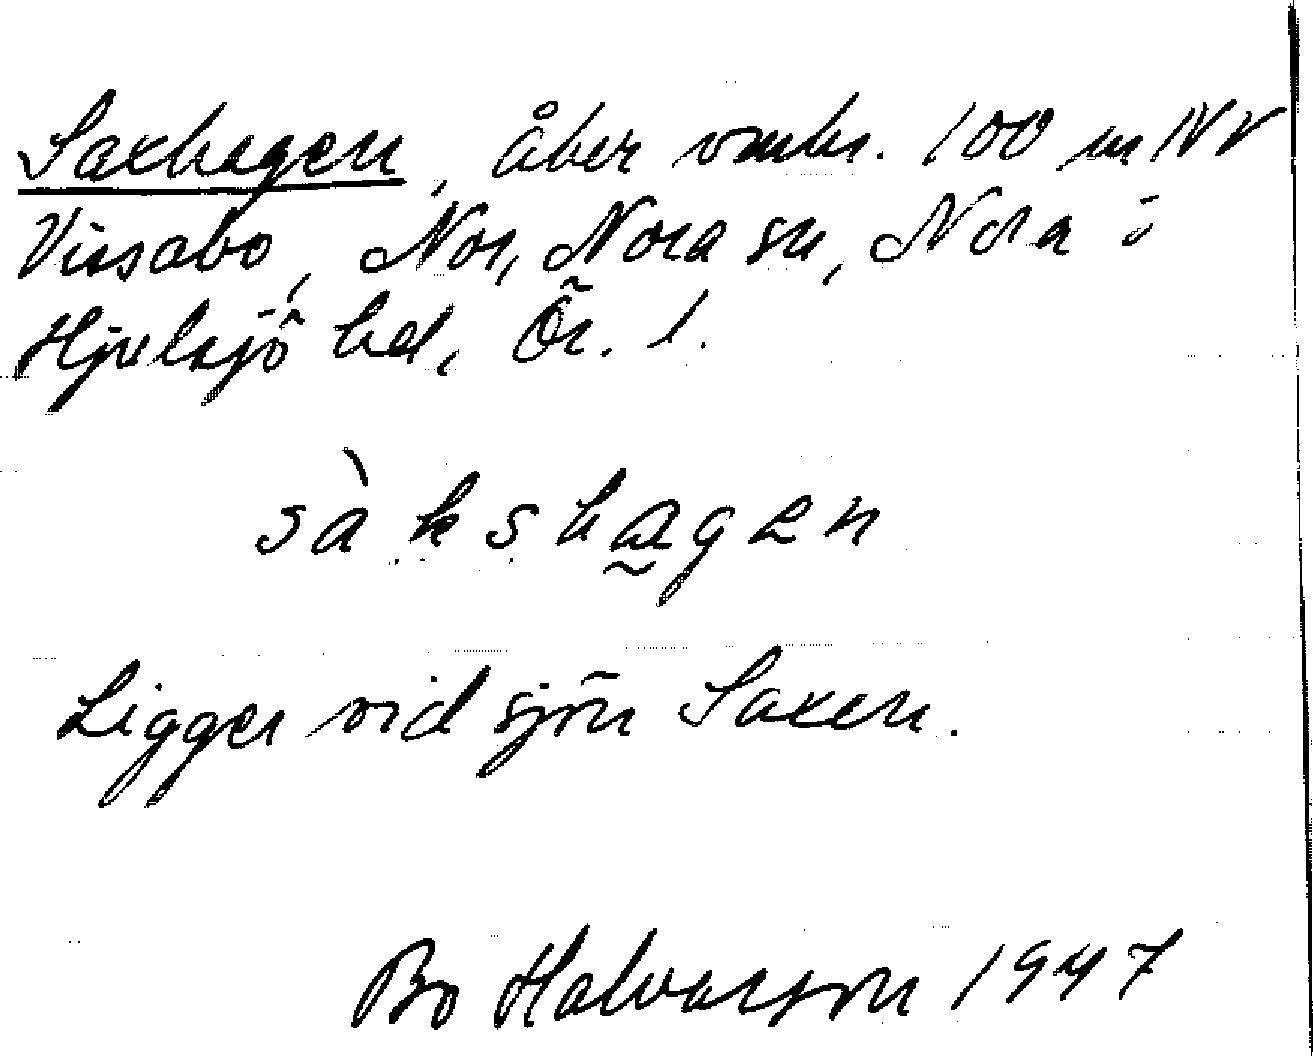 Saxhagen, åker omkr. 100 m NV
Vissabo, Nor, Nora sn, Nora o
Hjulsjö hd, Ör. l.
sàkshagen
Ligger vid sjön Saxen.
Bo Halvarson 1947